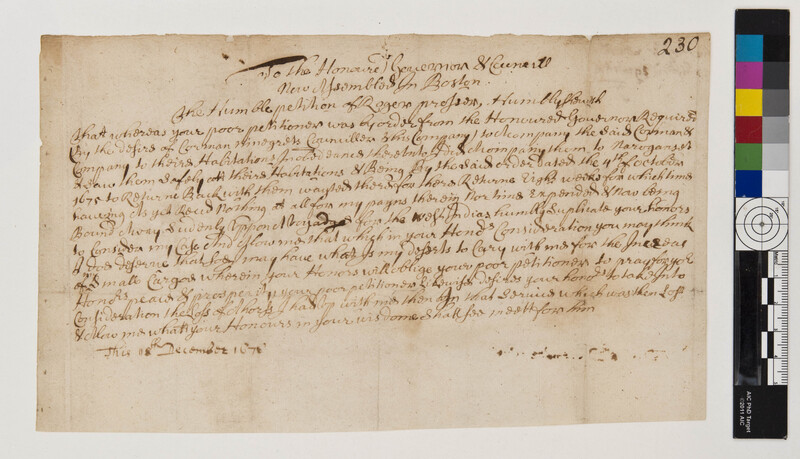 230
To the Honour.ble Governor & Councill
Now Assembled In Boston
The Humble petition of Roger prosser, Humbly Shewith
That whereas your poor petitioner was by order from the Honoured Governor Required
by the desire of Corman Ninegrets Counciller & his Company to Acompany the said Corman &
Company to theire Habitations In obedience thereunto I did Acompany them to Naroganset
& saw them safely att theire Habitations & Being by the said order dated the 4th of October
1675 to Returne Back with them wayted there for there Returne Eight weeks for which time
having As yet Rec'd Nothing at all for my payns therein Nor time Expended & Now being
Bound Away Sudenly Uppon A Voyadge for the West Indias humbly Suplicate your honors
to Consider my Case And Allow me that which in your Hono.rs Consideration you may think
I doe deserve that soe I may have what Is my deserts to Cary with me for the Increas
of A Small Cargoe wherein your Honors will oblige your poor petitioner to pray for yo.r
Hono.rs peace & prosperity your poor petitioner Likewise desires your hono.rs to take Into
Consideration the Loss of A horse I had with me then in that Service which was then Lost
& Allow me what your Honours in your wisdome Shall see meett for him
This 18th December 1675
AIC PhD Target
©2011 AIC